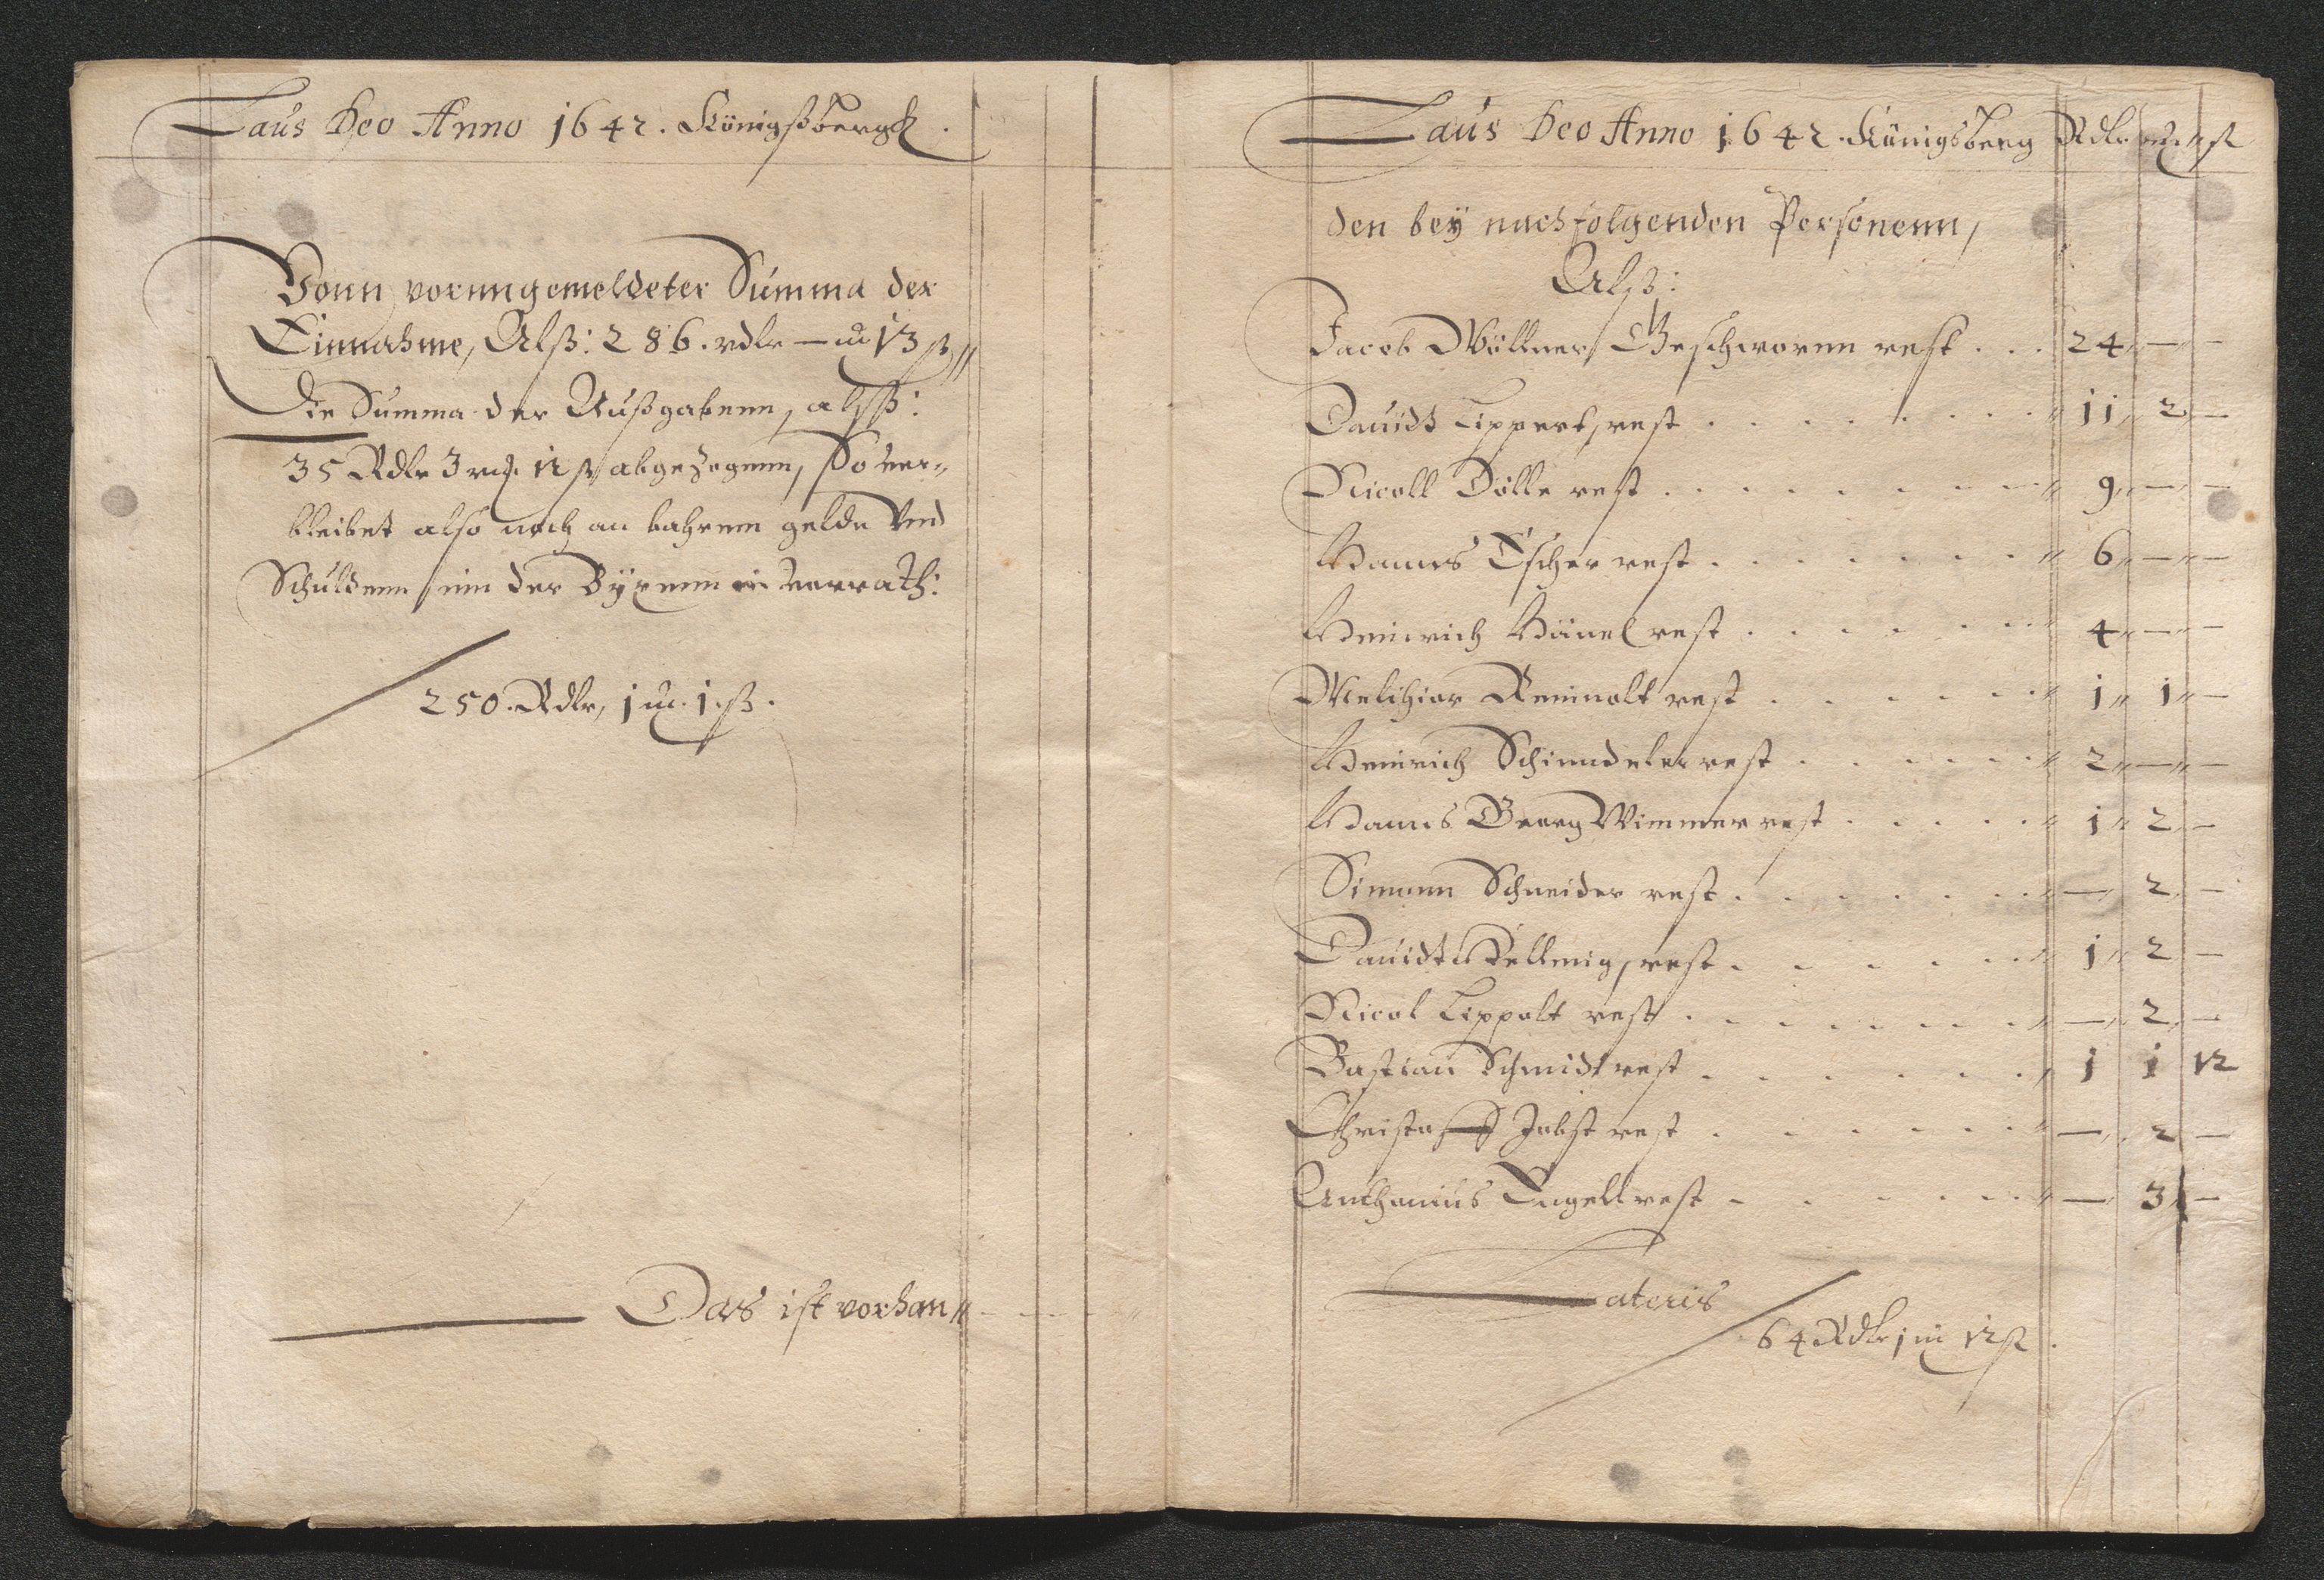 Laus Deo Anno 1642. Königßbergk.
Vonn vorrmgemeldeter Summa der
Einnahme, Alß: 286. rdlr — m 13 ß,
Die Summa der Außgabenn, alß:
35 Rdlr 3 m 12 ß abgezogenn, So ver=
bleibet also noch an bahrem gelde Vnd
Schuldenn inn der Büxenn in vorrath:
250. Rdlr, 1 m. 1. ß.
Das ist vorhan=
Laus Deo Anno 1642. Königsberg Rdlr m ß
den bey nachfolgenden Personenn,
Alß:
Jacob Möllner Geschworner rest . . . 24 — —
Dauidt Lippert, rest . . . . . 11 2 —
Nicoll Dölle rest . . . . . 9 — —
Hanns Escher rest . . . . . 6 — —
Heinrich Hänel rest . . . . . 4 — —
Melchior Reinnolt rest . . . . . 1 1 —
Heinrich Schinndeler rest . . . . . 2 — —
Hanns Georg Wimmer rest . . . . . 1 2 —
Simonn Schneider rest . . . . . — 2 —
Dauidt Hellwig, rest . . . . . 1 2 —
Nicol Lippolt rest . . . . . — 2 —
Bastian Schmidt rest . . . . . 1 1 12
Christoff Jobst rest . . . . . — 2 —
Anthonius Engell rest . . . . . — 3 —
Lateris
64 Rdlr 1 m 12 ß.